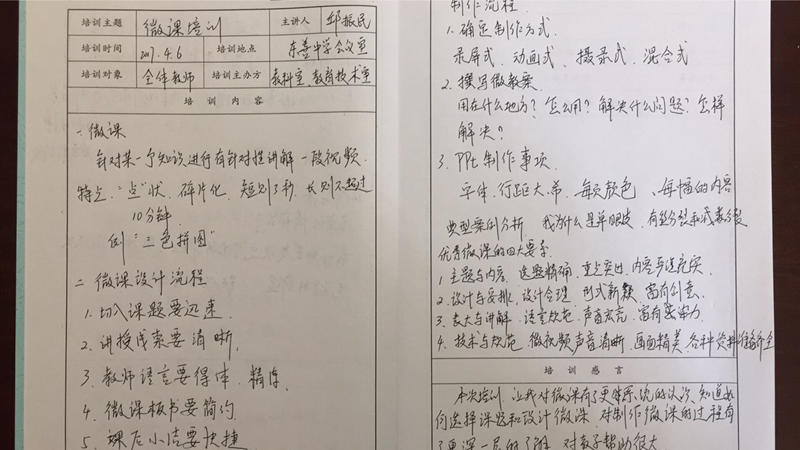 培训主题 微课培训 主讲人 邱振民
培训时间 2017.4.6 培训地点 东善中学会议室
培训对象 全体教师 培训主办方 教科室、教育技术室
培训内容
一、微课
针对某一个知识进行有针对性讲解一段视频.
特点:“点”状、碎片化、短则3秒、长则不超过
10分钟
例“三色拼图”
二 微课设计流程
1. 切入课题要迅速
2. 讲授线索要清晰.
3. 教师语言要得体、精
4. 微课板书要简约
5. 课后小结要快捷
制作流程
1. 确定制作方式
录屏式、动画式、摄录式、混合式
2. 撰写微教案
用在什么地方? 怎么用? 解决什么问题? 怎样
解决?
3. PPt 制作事项
字体、行距大、每页颜色、每幅的内容
典型案例分析 我为什么是单眼皮、有丝分裂和减数分裂
优秀微课的四大要素
1. 主题与内容 选题精确、重点突出、内容充实
2. 设计与安排、设计合理 形式新颖、富有创意.
3. 表达与讲解、语言规范、声音宏亮、富有
4. 技术与规范 微视频声音清晰、画面精美、各种资料准备齐全
培训感言
本次培训,让我对微课有了更体系统的认识,知道如
何选择课题和设计微课,对制作微课的过程有
了更深一层的了解,对教学帮助很大